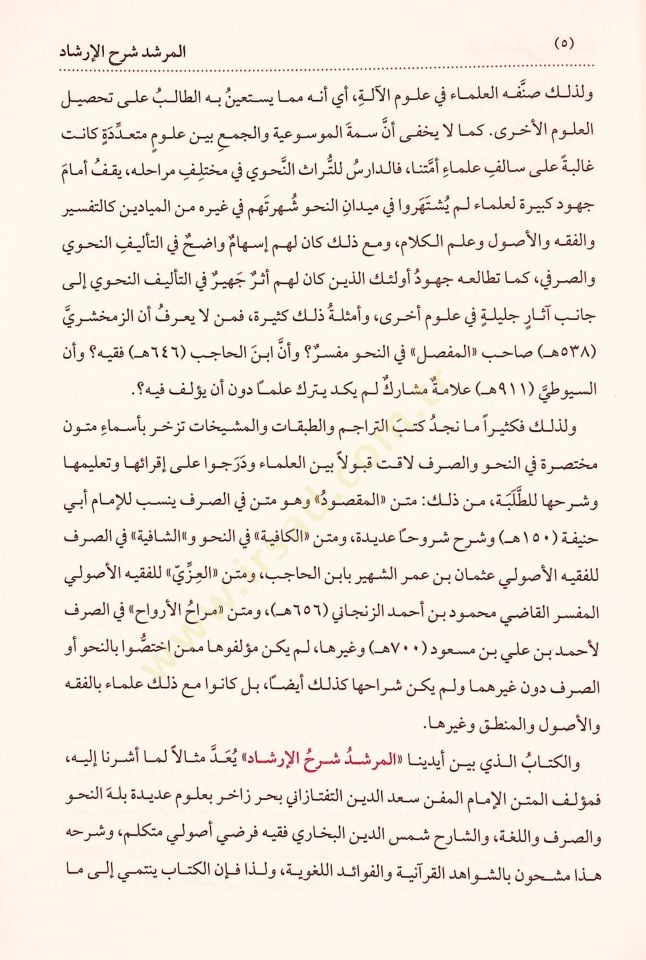 (٥)
المرشد شرح الإرشاد
ولذلك صنَّفه العلماء في علوم الآلةِ، أي أنه مما يستعينُ به الطالبُ على تحصيل
العلوم الأخرى. كما لا يخفى أنَّ سمةَ الموسوعية والجمع بين علومٍ متعدِّدَةٍ كانت
غالبةً على سالفِ علماءِ أمَّتنا، فالدارسُ للتُّراث النَّحوي في مختلِفِ مراحله، يقفُ أمامَ
جهود كبيرة لعلماء لم يُشتَهَروا في ميدانِ النحو شُهرتَهم في غيره من الميادين كالتفسير
والفقه والأصول وعلم الكلام، ومع ذلك كان لهم إسهامٌ واضحٌ في التأليفِ النحوي
والصرفي، كما تطالعه جهودُ أولئك الذين كان لهم أثرٌ جَهيرٌ في التأليف النحوي إلى
جانب آثارٍ جليلةٍ في علوم أخرى، وأمثلةُ ذلك كثيرة، فمن لا يعرفُ أن الزمخشريَّ
(٥٣٨هـ) صاحب «المفصل» في النحو مفسرٌ؟ وأنَّ ابنَ الحاجب (٦٤٦هـ) فقيه؟ وأن
السيوطيَّ (٩١١هـ) علامةٌ مشاركٌ لم يكد يترك علماً دون أن يؤلف فيه؟.
ولذلك فكثيراً ما نجدُ كتبَ التراجم والطبقات والمشيخات تزخر بأسماءِ متون
مختصرة في النحو والصرف لاقت قبولاً بين العلماء ودَرَجوا على إقرائها وتعليمها
وشرحها للطَّلَبَة، من ذلك: متن «المقصودُ» وهو متن في الصرف ينسب للإمام أبي
حنيفة (١٥٠هـ) وشرح شروحاً عديدة، ومتن «الكافية» في النحو و«الشافية» في الصرف
للفقيه الأصولي عثمان بن عمر الشهير بابن الحاجب، ومتن «العِزِّيّ» للفقيه الأصولي
المفسر القاضي محمود بن أحمد الزنجاني (٦٥٦هـ)، ومتن «مراحُ الأرواح» في الصرف
لأحمد بن علي بن مسعود (٧٠٠هـ) وغيرها، لم يكن مؤلفوها ممن اختصُّوا بالنحو أو
الصرف دون غيرهما ولم يكن شراحها كذلك أيضاً، بل كانوا مع ذلك علماء بالفقه
والأصول والمنطق وغيرها.
والكتابُ الذي بين أيدينا «المرشدُ شرحُ الإرشاد» يُعَدَّ مثالاً لما أشرنا إليه،
فمؤلف المتن الإمام المفن سعد الدين التفتازاني بحر زاخر بعلوم عديدة بلهَ النحو
والصرف واللغة، والشارح شمس الدين البخاري فقيه فرضي أصولي متكلم، وشرحه
هذا مشحون بالشواهد القرآنية والفوائد اللغوية، ولذا فإن الكتاب ينتمي إلى ما
www.irsad.com.tr